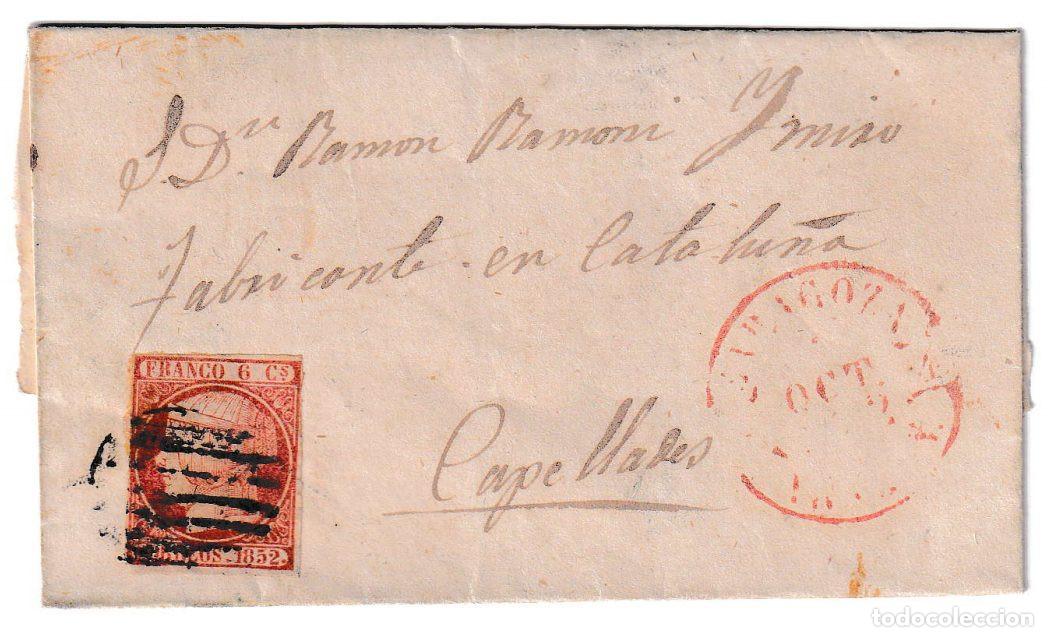 S. Dn Ramon Ramoni Ymiro
Fabricante en Cataluña
Capellades
FRANCO 6 Cs
1852.
ZARAGOZA
OCT
todocoleccion